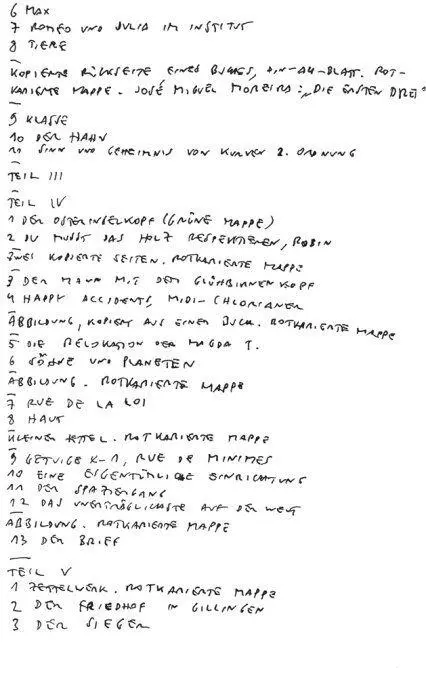 6 MAX
7 ROMEO UND JULIA IM INSTITUT
8 TIERE
KOPIERTE RÜCKSEITE EINES BUCHES, DIN-A4-BLATT. ROT-
KARIERTE MAPPE. JOSÉ MIGUEL MOREIRA: „DIE ERSTEN DREI“
9 KLASSE
10 DER HAHN
11 SINN UND GEHEIMNIS VON KURVEN 2. ORDNUNG
TEIL III
TEIL IV
1 DER OSTERINSELKOPF (GRÜNE MAPPE)
2 DU MUSST DAS HOLZ RESPEKTIEREN, ROBIN
ZWEI KOPIERTE SEITEN. ROTKARIERTE MAPPE
3 DER MANN MIT DEM GLÜHBIRNENKOPF
4 HAPPY ACCIDENTS, MIDI-CHLORIANER
ABBILDUNG, KOPIERT AUS EINEM BUCH. ROTKARIERTE MAPPE
5 DIE RELOKATION DER MAGDA T.
6 SÖHNE UND PLANETEN
ABBILDUNG. ROTKARIERTE MAPPE
7 RUE DE LA LOI
8 HAUT
KLEINER ZETTEL. ROTKARIERTE MAPPE
9 GETVIGE K-1, RUE DE MINIMES
10 EINE EIGENTÜMLICHE EINRICHTUNG
11 DER SPAZIERGANG
12 DAS UNERTRÄGLICHSTE AUF DER WELT
ABBILDUNG. ROTKARIERTE MAPPE
13 DER BRIEF
TEIL V
1 ZETTELWERK. ROTKARIERTE MAPPE
2 DER FRIEDHOF IN GILLINGEN
3 DER SIEGER